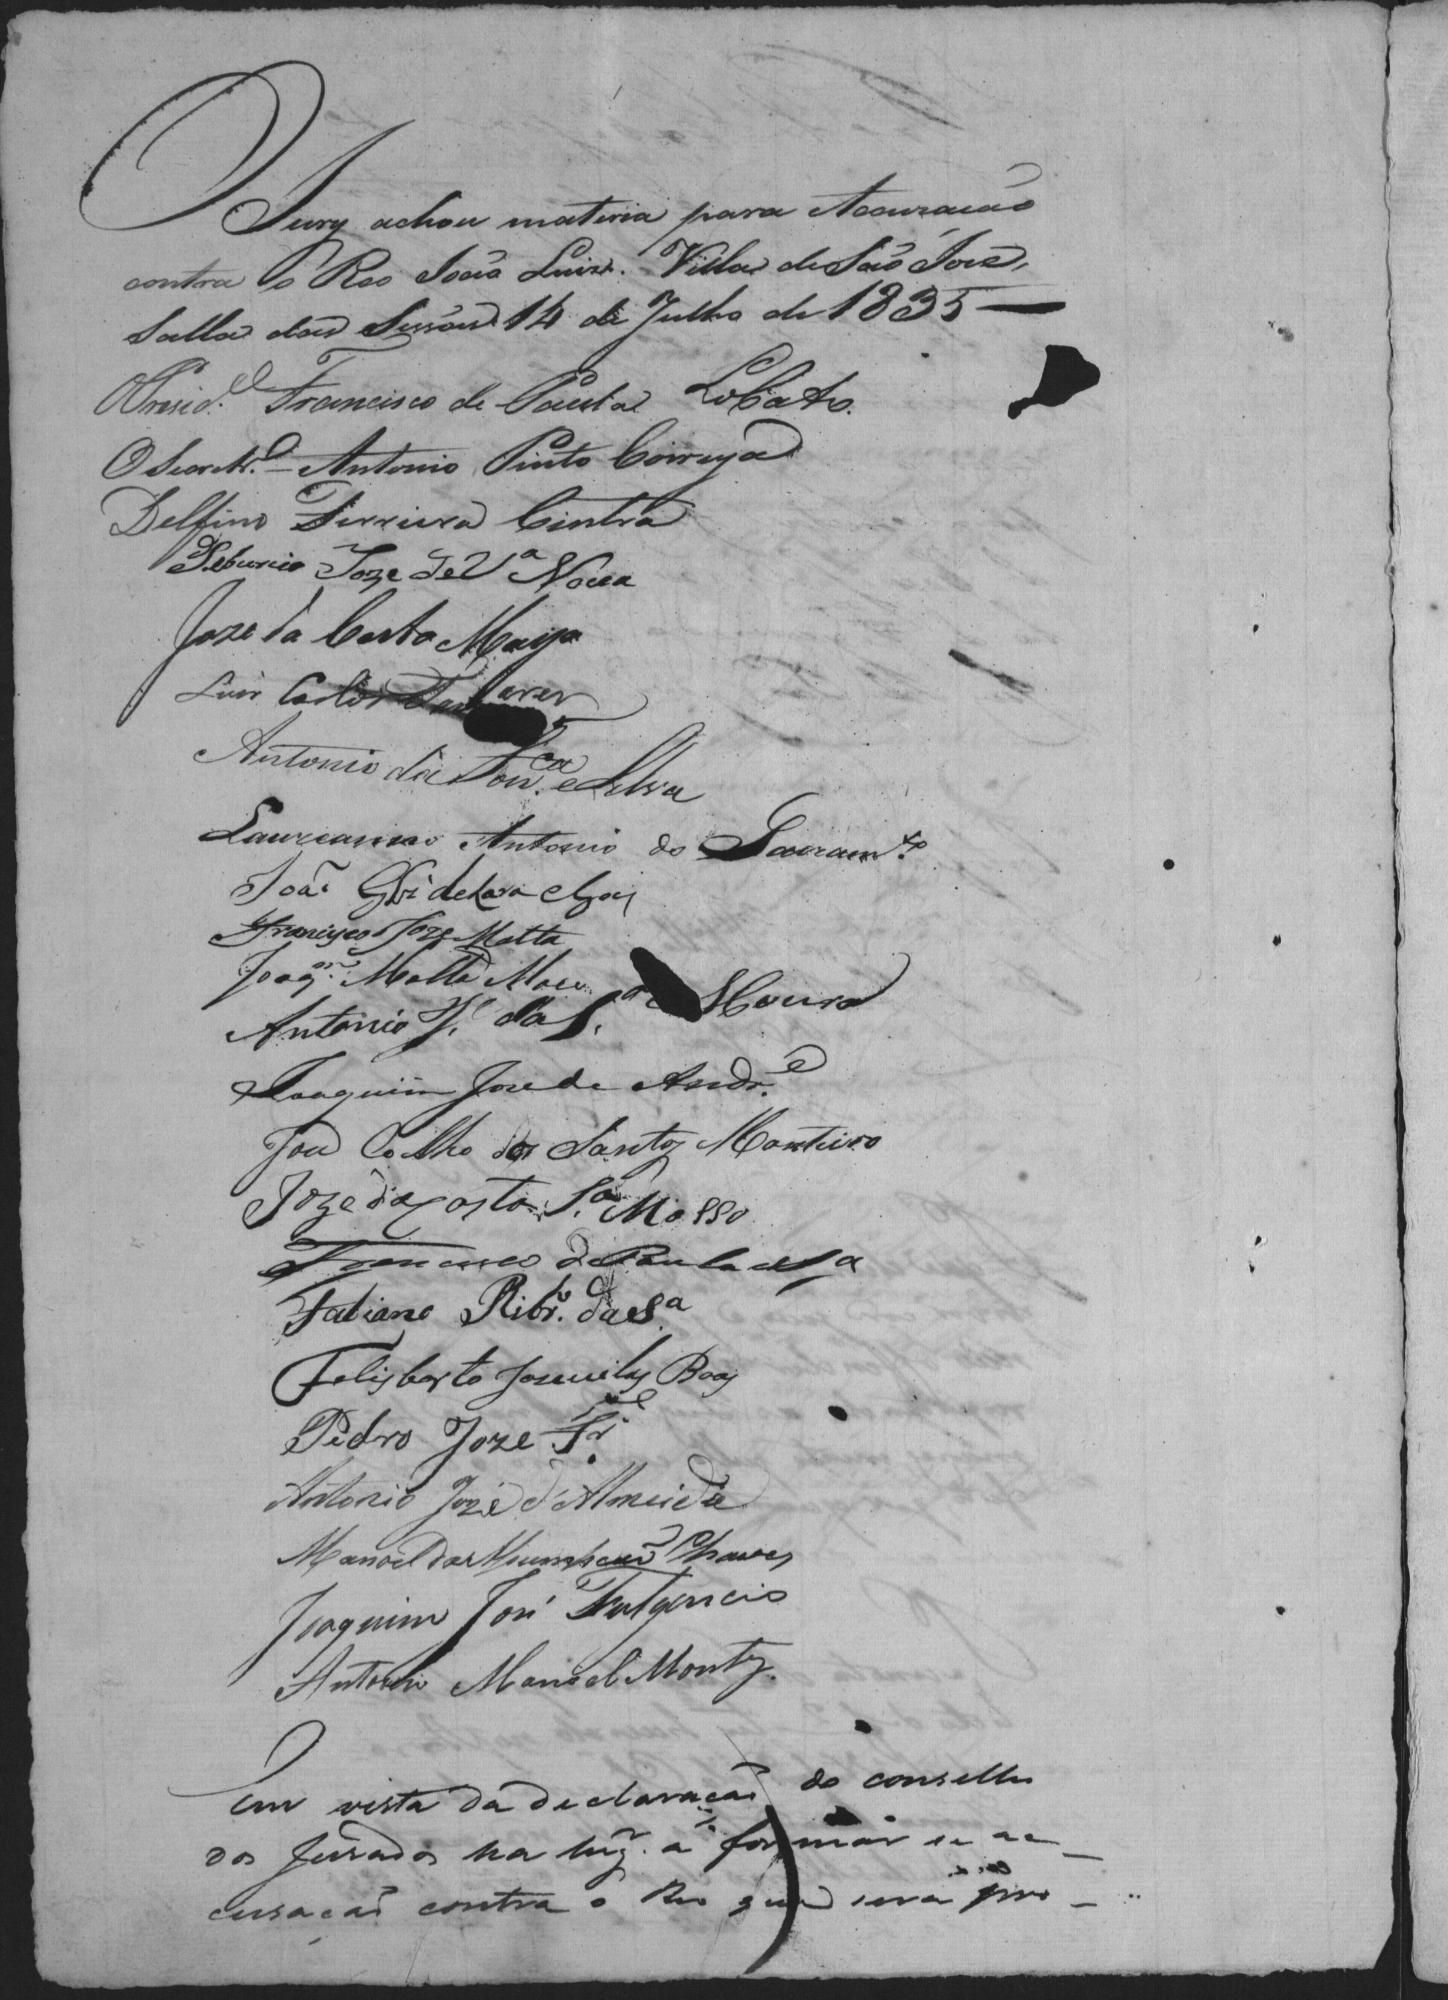 O Jury achou materia para Accuzacão
contra o Reo João Luiz. Villa de São Joze,
Salla das Sessões 14 de Julho de 1835
O Presid.e Francisco de Paula Lobato
O Secretr.o Antonio Pinto Correya
Delfino Ferreira Cintra
Joze de Nocea
Joze da Costa Maya
Luis Carlos Tavares
Antonio da Fon.ca e Silva
Laureanno Antonio do Sacram.to
Joaõ
Francisco Joze Motta
Joaq.m
Antonio da S.a Moura
Joaquim Joze de Andr.e
Joze Coelho dos Santos Monteiro
Joze da Costa S.a Mosso
Francisco de Paula e S.a
Fabiano Ribr.o da S.a
Felisberto Boas
Pedro Joze
Antonio José d'Almeida
Manoel das Chaves
Joaquim José Fulgencio
Antonio Manoel Montr.
Em vista da declaração do conselho
dos Jurados ha lug.r a formar se ac
cusação contra o Reo que será pro